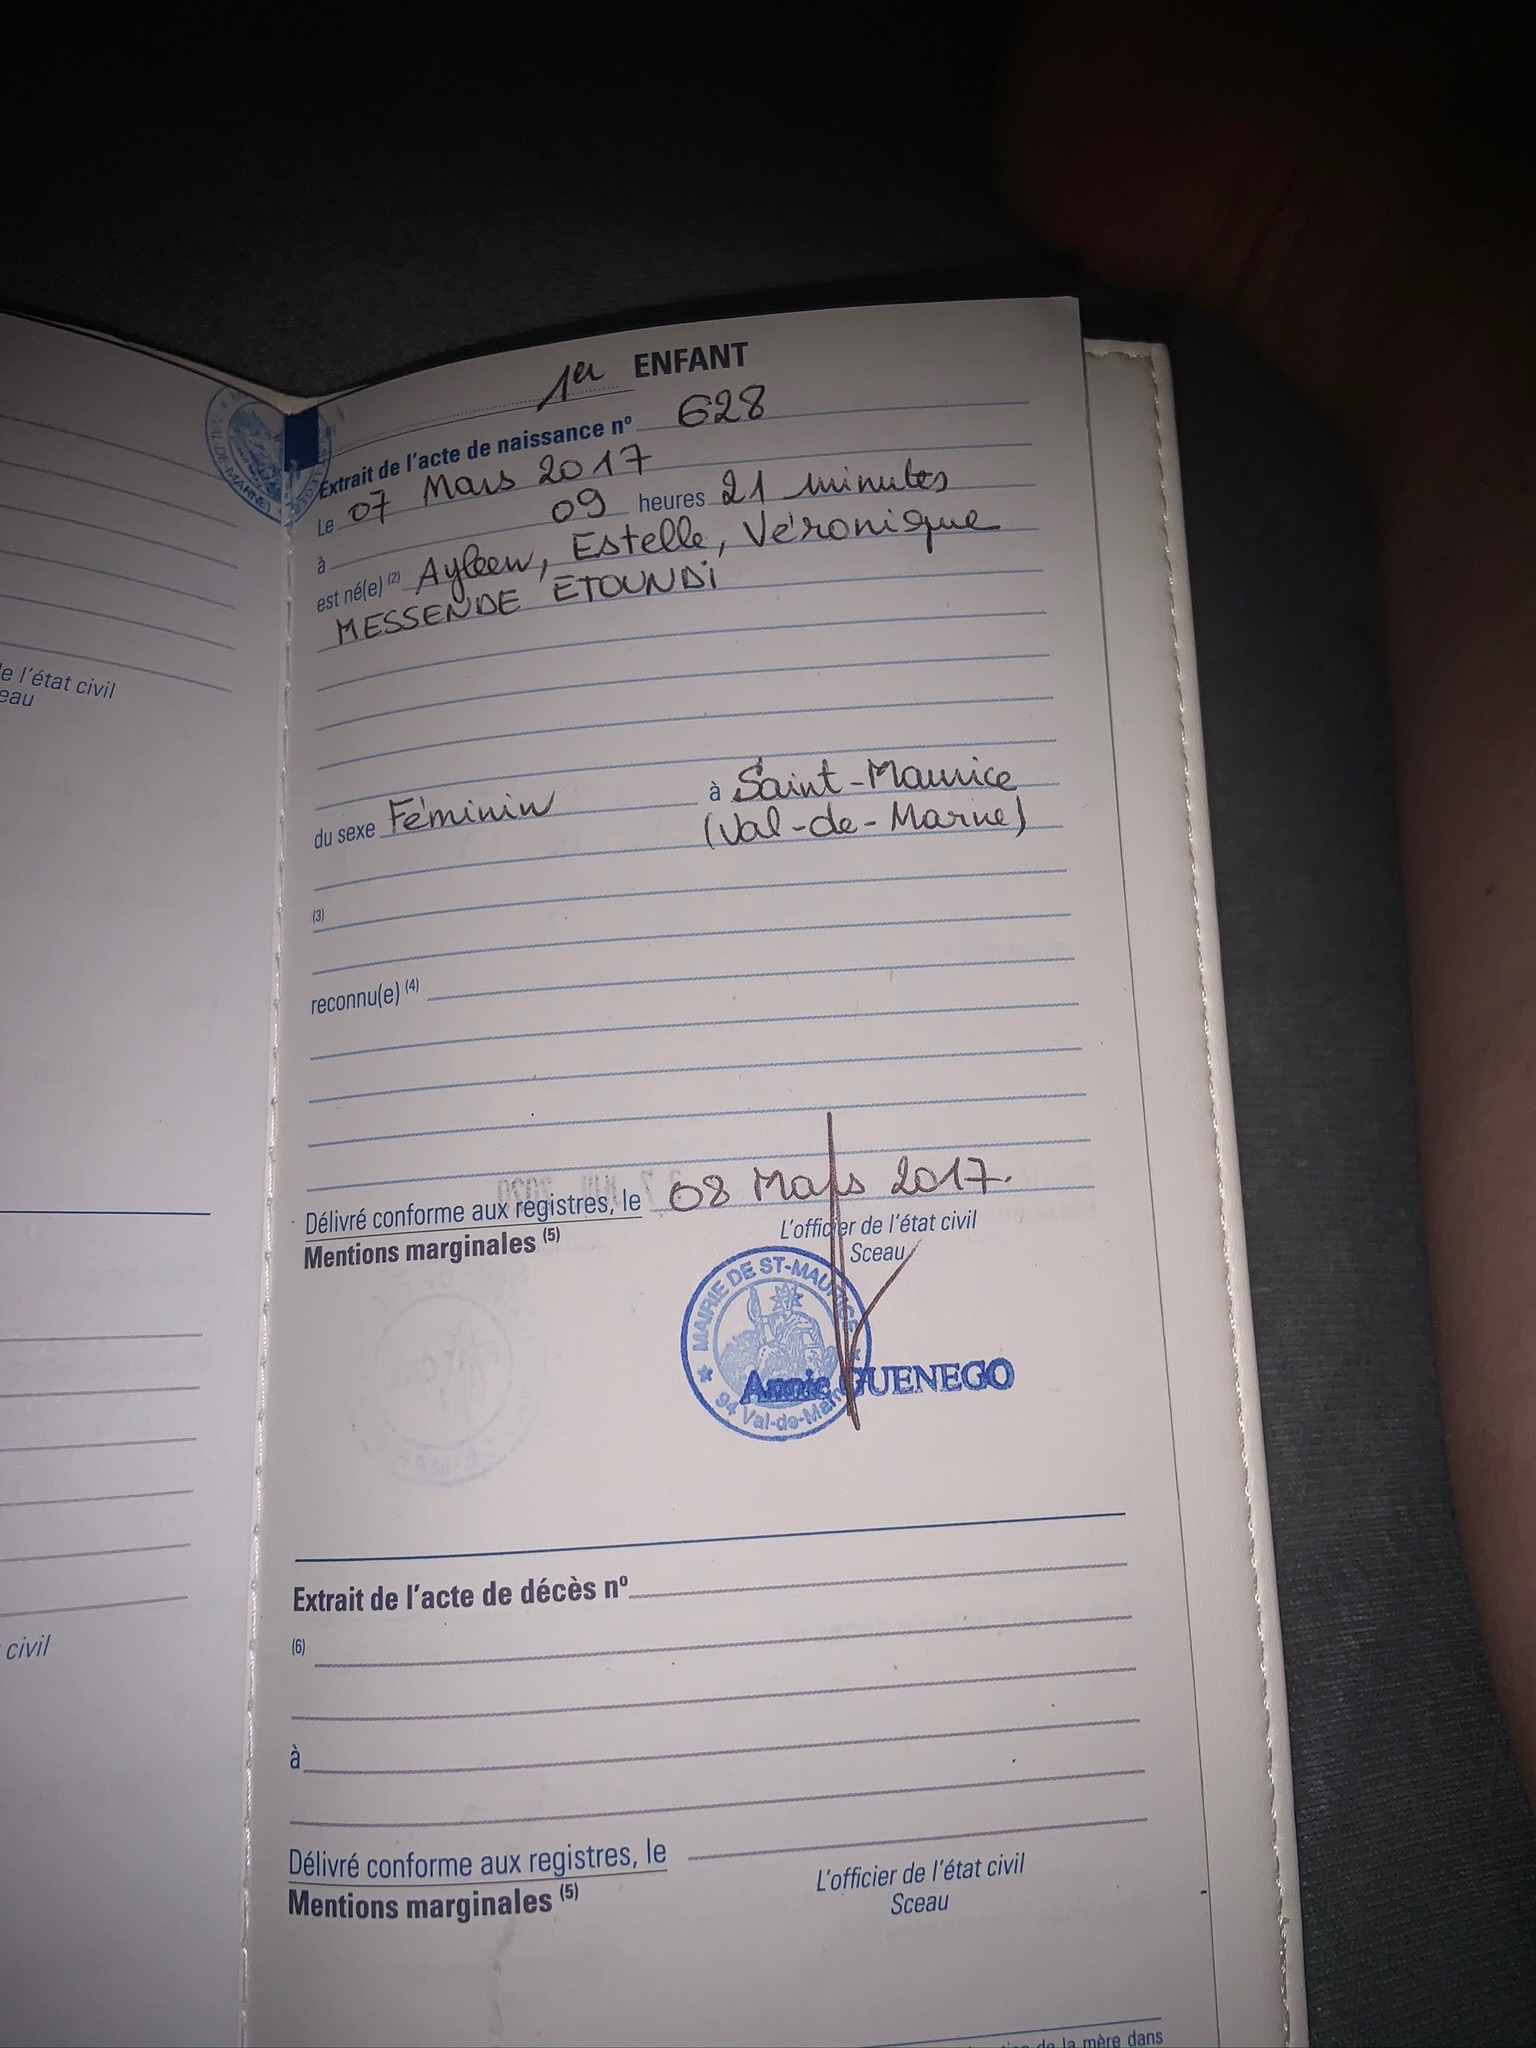 1er ENFANT
Extrait de l'acte de naissance nº 628
Le 07 Mars 2017
à 09 heures 21 minutes
est né(e) (2) Ayleen, Estelle, Véronique
MESSENDE ETOUNDI
du sexe Féminin à Saint-Maurice
(Val-de-Marne)
(3)
reconnu(e) (4)
Délivré conforme aux registres, le 08 Mars 2017.
Mentions marginales (5)
L'officier de l'état civil
Sceau
MAIRIE DE ST-MAURICE
94 Val-de-Marne
Annie GUENEGO
Extrait de l'acte de décès nº
(6)
à
Délivré conforme aux registres, le
Mentions marginales (5)
L'officier de l'état civil
Sceau
de la mère dans
e l'état civil
eau
civil